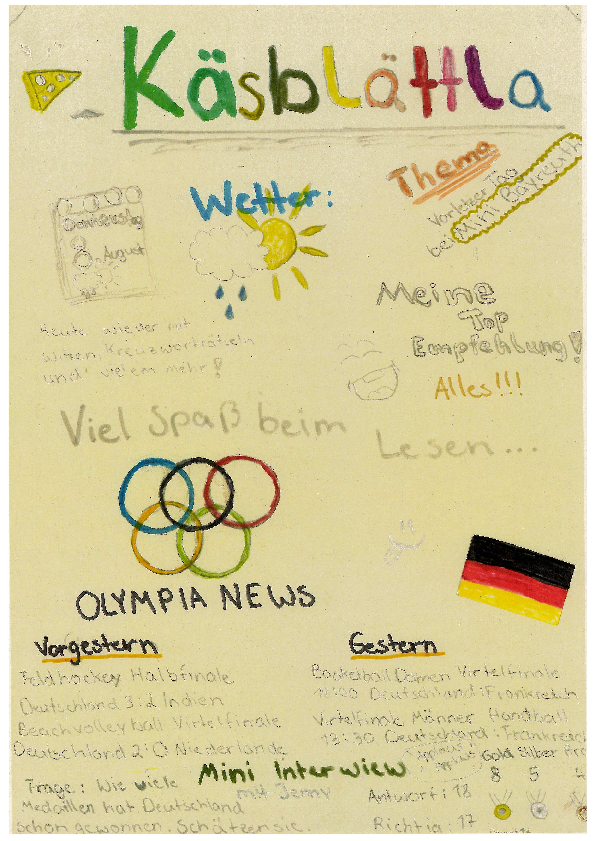 Käsblättla
Donnerstag
8. August
Wetter:
Thema
Vorletzter Tag
bei Mini Bayreuth
Heute wieder mit
witzen, Kreuzworträtseln
und vielem mehr!
Meine
Top
Empfehlung!
Alles!!!
Viel Spaß beim
Lesen...
OLYMPIA NEWS
Vorgestern
Feldhockey Halbfinale
Deutschland 3:2 Indien
Beachvolleyball Virtelfinale
Deutschland 2:0 Niederlande
Gestern
Basketball Damen Virtelfinale
Deutschland:Frankreich
Virtelfinale Männer Handball
Deutschland:Frankreich
Mini Interwiew
mit Jenny
Frage: Wie viele
Medaillen hat Deutschland
schon gewonnen. Schätzen sie.
Antwort: 18
Richtig: 17
Gold Silber
8 5 4